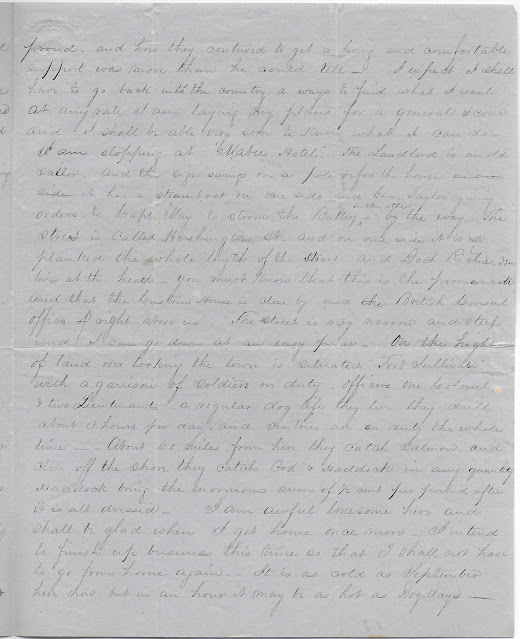 proud. and how they contrived to get a living and comfortable
support was more than he could tell — I expect I shall
have to go back into the country a ways to find what I want
At any rate I am laying my plans for a general scour
and I shall be able very soon to know what I can do —
I am stopping at "Mabees Hotel". The Landlord is an old
Sailor, and the sign swings on a pole before the house
it has a steamboat on one side and Gen Taylor giving
on the other
orders to Capt May to storm the Battery — by the way The
Street is called Washington St. and on one side it is all
planted the whole length of the street and Doct Richardson
lives at the head — you must know that this is the promenade
and that the Custom House is close by and the British Consul
office right above us The street is very narrow and steep
and I can go down at an easy pace — On the hight
of land over looking the town is situated Fort Sullivan
with a garrison of soldiers on duty. officers one Colonel
& two Lieutenants a regular dog life they live they drill
about 2 hours per day, and sentries are on duty the whole
time — About 60 miles from here they catch Salmon and
close off the shore they catch Cod & Haddock in any quantity
Haddock bring the enormous sum of ½ cent per pound after
it is all dressed — I am awful lonesome here and
shall be glad when I get home once more — I intend
to finish up business this time so that I shall not have
to go from home again — It is as cold as September
here now but in an hour it may be as hot as Dog days —